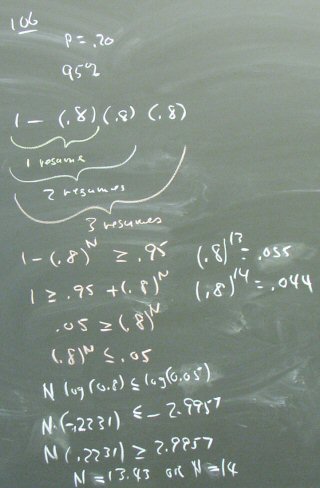 106
P = .20
95%
1 - (.8)(.8)(.8)
1 resume
2 resumes
3 resumes
1-(.8)^N ≥ .95
(.8)^13 = .055
1 ≥ .95 + (.8)^N
(.8)^14 = .044
.05 ≥ (.8)^N
(.8)^N ≤ .05
N log(0.8) ≤ log(0.05)
N.(-.2231) ≤ - 2.9957
N(.2231) ≥ 2.9957
N = 13.43 or N = 14